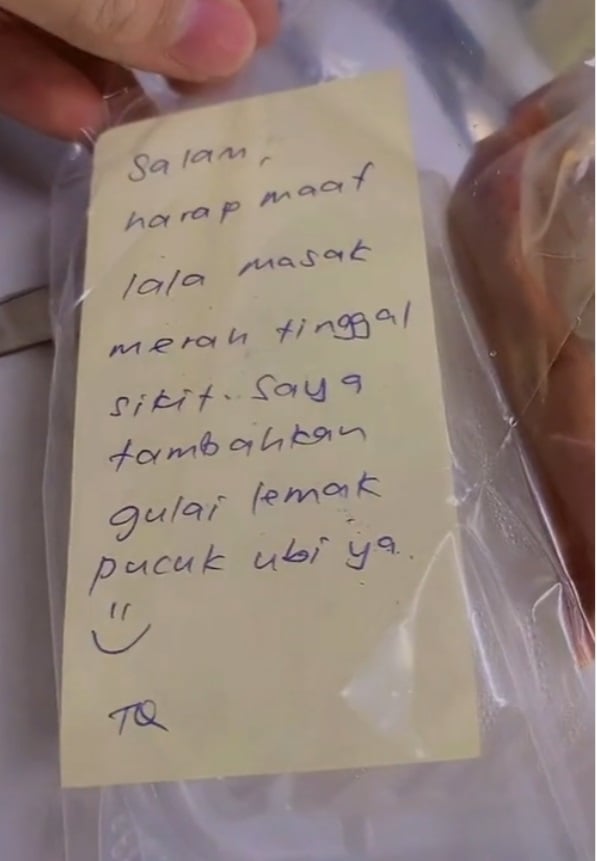 Salam,
harap maaf
lala masak
merah tinggal
sikit. Saya
tambahkan
gulai lemak
pucuk ubi ya.
TQ